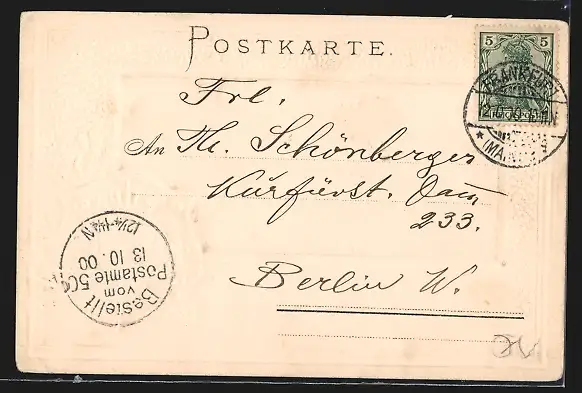 POSTKARTE.
5 5
FRANKFURT
(MAIN)
Frl.
An Th. Schönberger
Kurfürst. Dam
233.
Berlin W.
Bestellt
vom
Postamte 50
13 10. 00
12¼-1¼ N